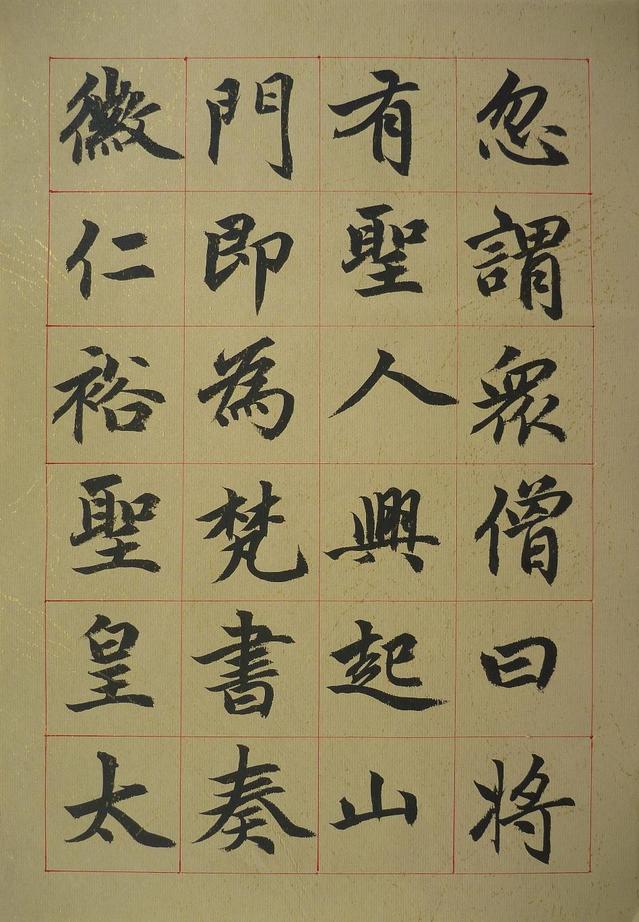 忽謂衆僧曰將
有聖人興起山
門即為梵書奏
徽仁裕聖皇太